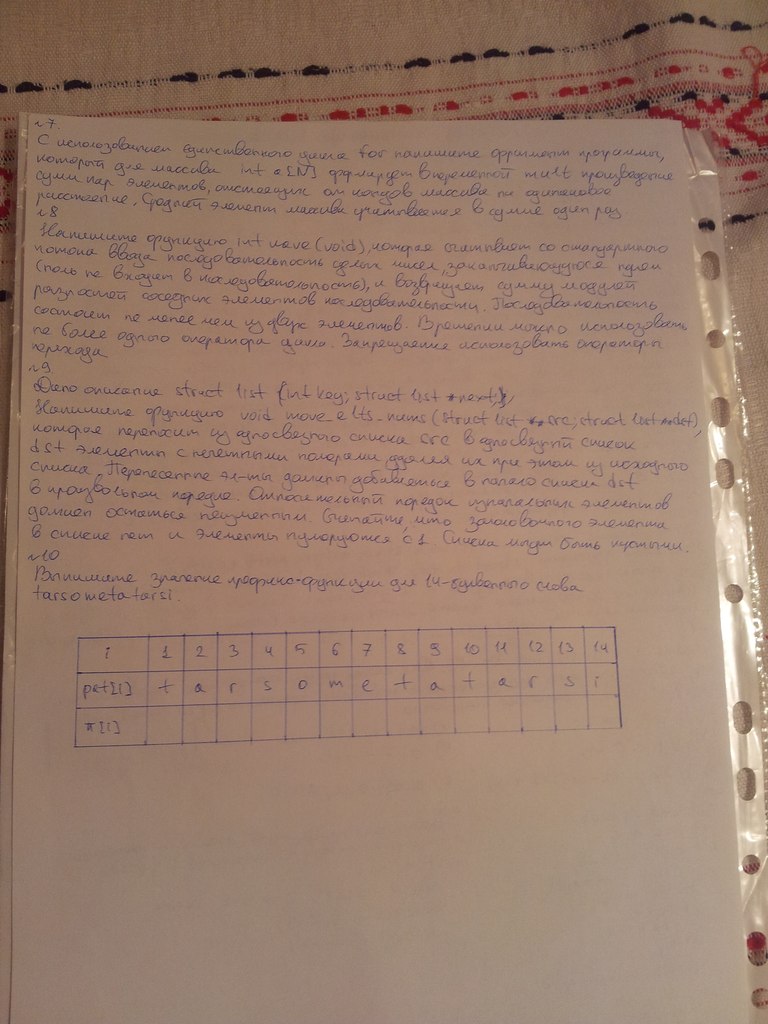 №7.
С использованием единственного цикла for напишите фрагмент программы,
который для массива int a[N] формирует в переменной mult произведение
сумм пар элементов, отстоящих от концов массива на одинаковое
расстояние. Средний элемент массива учитывается в сумме один раз.
№8
Напишите функцию int wave(void), которая считывает со стандартного
потока ввода последовательность целых чисел, заканчивающуюся нулем
(ноль не входит в последовательность), и возвращает сумму модулей
разностей соседних элементов последовательности. Последовательность
состоит не менее чем из двух элементов. В решении можно использовать
не более одного оператора цикла. Запрещается использовать операторы
перехода
№9
Дано описание struct list {int key; struct list *next};
Напишите функцию void move_elts_nums(struct list **src; struct list **dst),
которая переносит из односвязного списка src в односвязный список
dst элементы с нечетными номерами удаляя их при этом из исходного
списка. Перенесенные эл-ты должны добавляться в начало списка dst
в произвольном порядке. Относительный порядок изначальных элементов
должен остаться неизменным. Считайте, что заголовочного элемента
в списке нет и элементы нумеруются с 1. Списки могут быть пустыми.
№10
Выпишите значение префикс-функции для 14-буквенного слова
tarsometatarsi.
i 1 2 3 4 5 6 7 8 9 10 11 12 13 14
pat[i] t a r s o m e t a t a r s i
π[i]